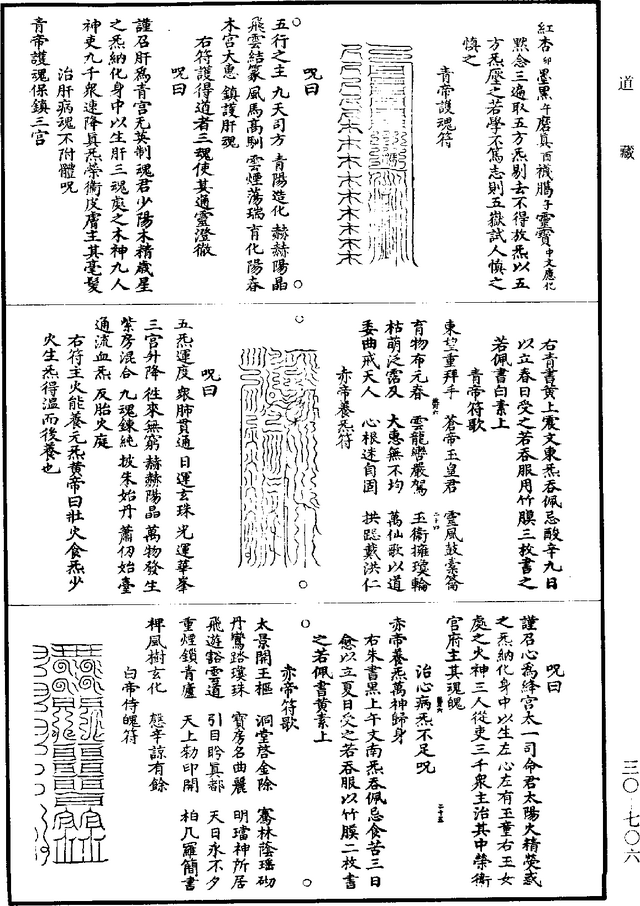 道藏
紅杏卯墨黑午磨真酉襪騰子靈寶中文應化
默念三遍取五方炁剔去不得放炁以五
方炁壓之若學不篤志則五嶽試人慎之
慎之
青帝護魂符
呪曰
五行之主 九天司方 青陽造化 赫赫陽晶
飛雲結篆 風馬高馴 雲煙蕩瑞 育化陽春
木宮大惠 鎮護肝魂
右符護得道者三魂使其通靈澄徹
呪曰
謹召肝為青宮无英制魂君少陽木精歲星
之炁納化身中以生肝三魂處之木神九人
神吏九千衆速降真炁榮衛皮膚主其毫髮
青帝護魂保鎮三宮
治肝病魂不附體呪
右青書黃上震文東炁吞佩忌酸辛九日
以立春日受之若吞服用竹膜三枚書之
若佩書白素上
青帝符歌
東望重拜手 蒼帝玉皇君 靈風鼓橐籥
育物布元春 雲龍轡嚴駕 玉衛擁瓊輪
枯萌泛霑及 大惠無不均 萬仙歌以道
委曲戒天人 心根迷自固 拱跽戴洪仁
赤帝養炁符
呪曰
五炁運度 衆肺貫通 日運玄珠 光運華峯
三宮升降 徃來無窮 赫赫陽晶 萬物發生
紫房混合 九魂鍊純 披朱始丹 蕭仞始臺
通流血炁 反胎火庭
右符主火能養元炁黃帝曰壯火食炁少
火生炁得溫而後養也
呪曰
謹召心為絳宮太一司命君太陽火精熒惑
之炁納化身中以生左心左有玉童右玉女
處之火神三人從吏三千衆主治其中榮衛
官府主其魂魄
治心病炁不足呪
赤帝養炁萬神歸身
右朱書黑上午文南炁吞佩忌食苦三日
愈以立夏日受之若吞服以竹膜二枚書
之若佩書黃素上
赤帝符歌
太景開玉樞 洞堂啓金除 騫林蔭瑶砌
丹鸞路瓊珠 寶房名曲麗 明璫神所居
飛遊谿雲道 引日昤真都 天日永不夕
重煙鎖青廬 天上勑印開 柏几羅簡書
椑風樹玄化 慇辛諒有餘
白帝侍魄符
三〇—七〇六